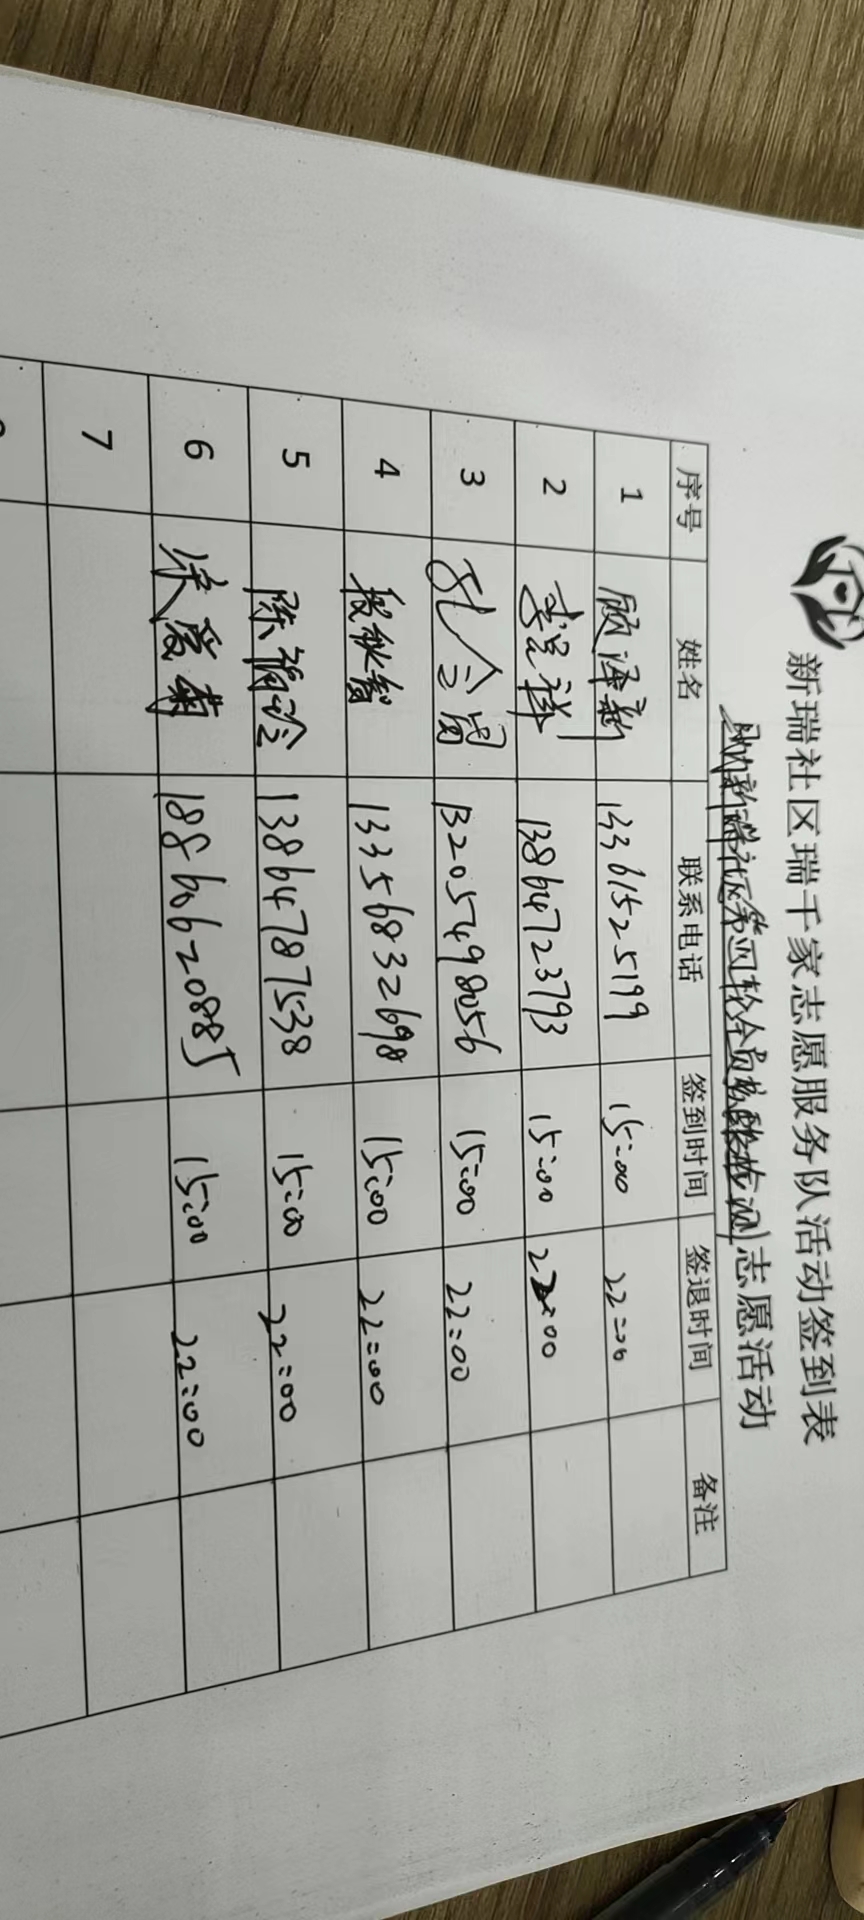 新瑞社区瑞千家志愿服务队活动签到表
助新瑞社区第四轮全员核酸检测志愿活动
序号 姓名 联系电话 签到时间 签退时间 备注
1 顾泽新 13361525199 15:00 22:00
2 李兰祥 13864723793 15:00 22:00
3 孔令 13205498056 15:00 22:00
4 段秋 13356832698 15:00 22:00
5 陈福玲 13864787538 15:00 22:00
6 徐爱菊 18860620885 15:00 22:00
7